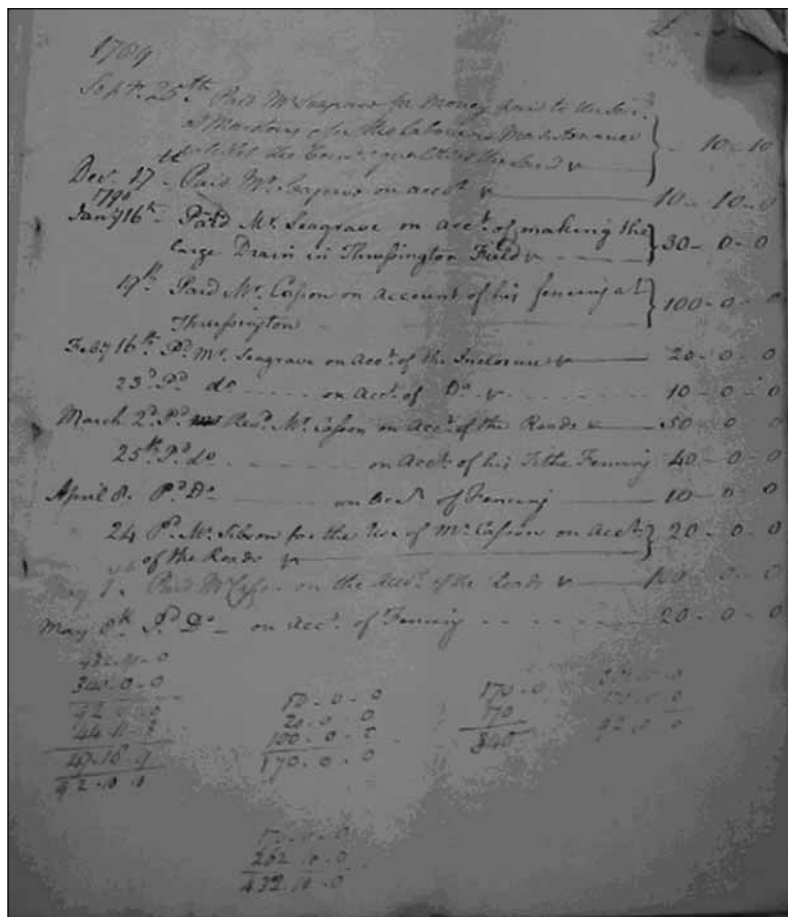 1789
Sept. 25th Paid Mr Seagrave for Money paid to
for the Labourers Maintenance
the Land - 10 - 10
Decr. 17th Paid Mr. Seagrave on acct. 10 - 10 - 0
1790
Jany 16th Paid Mr. Seagrave on acct. of making the
large Drain in Thrussington Field 30 - 0 - 0
19th Paid Mr. Casson on account of his fencing at
Thrussington 100 - 0 - 0
Feby 16th Pd. Mr. Seagrave on acct. of the Inclosure 20 - 0 - 0
23d Pd. do on acct. of Do. 10 - 0 - 0
March 2d Pd. Revd. Mr. Casson on acct. of the Roads 50 - 0 - 0
25th Pd. do on acct. of his Tithe Fencing 40 - 0 - 0
April 8. Pd. Do on acct. of Fencing 10 - 0 - 0
24 Pd. Mr. for the Use of Mr. Casson on acct.
of the Roads 20 - 0 - 0
May 1. Paid Mr Casson on the acct. of the Roads 100 - 0 - 0
May 8th Pd. Do on acct. of Fencing 20 - 0 - 0
340 - 0 - 0
92 - 10 - 0
50 - 0 - 0
20 - 0 - 0
100 - 0 - 0
170 - 0 - 0
170 - 0
170
340
262 - 10 - 0
432 - 10 - 0